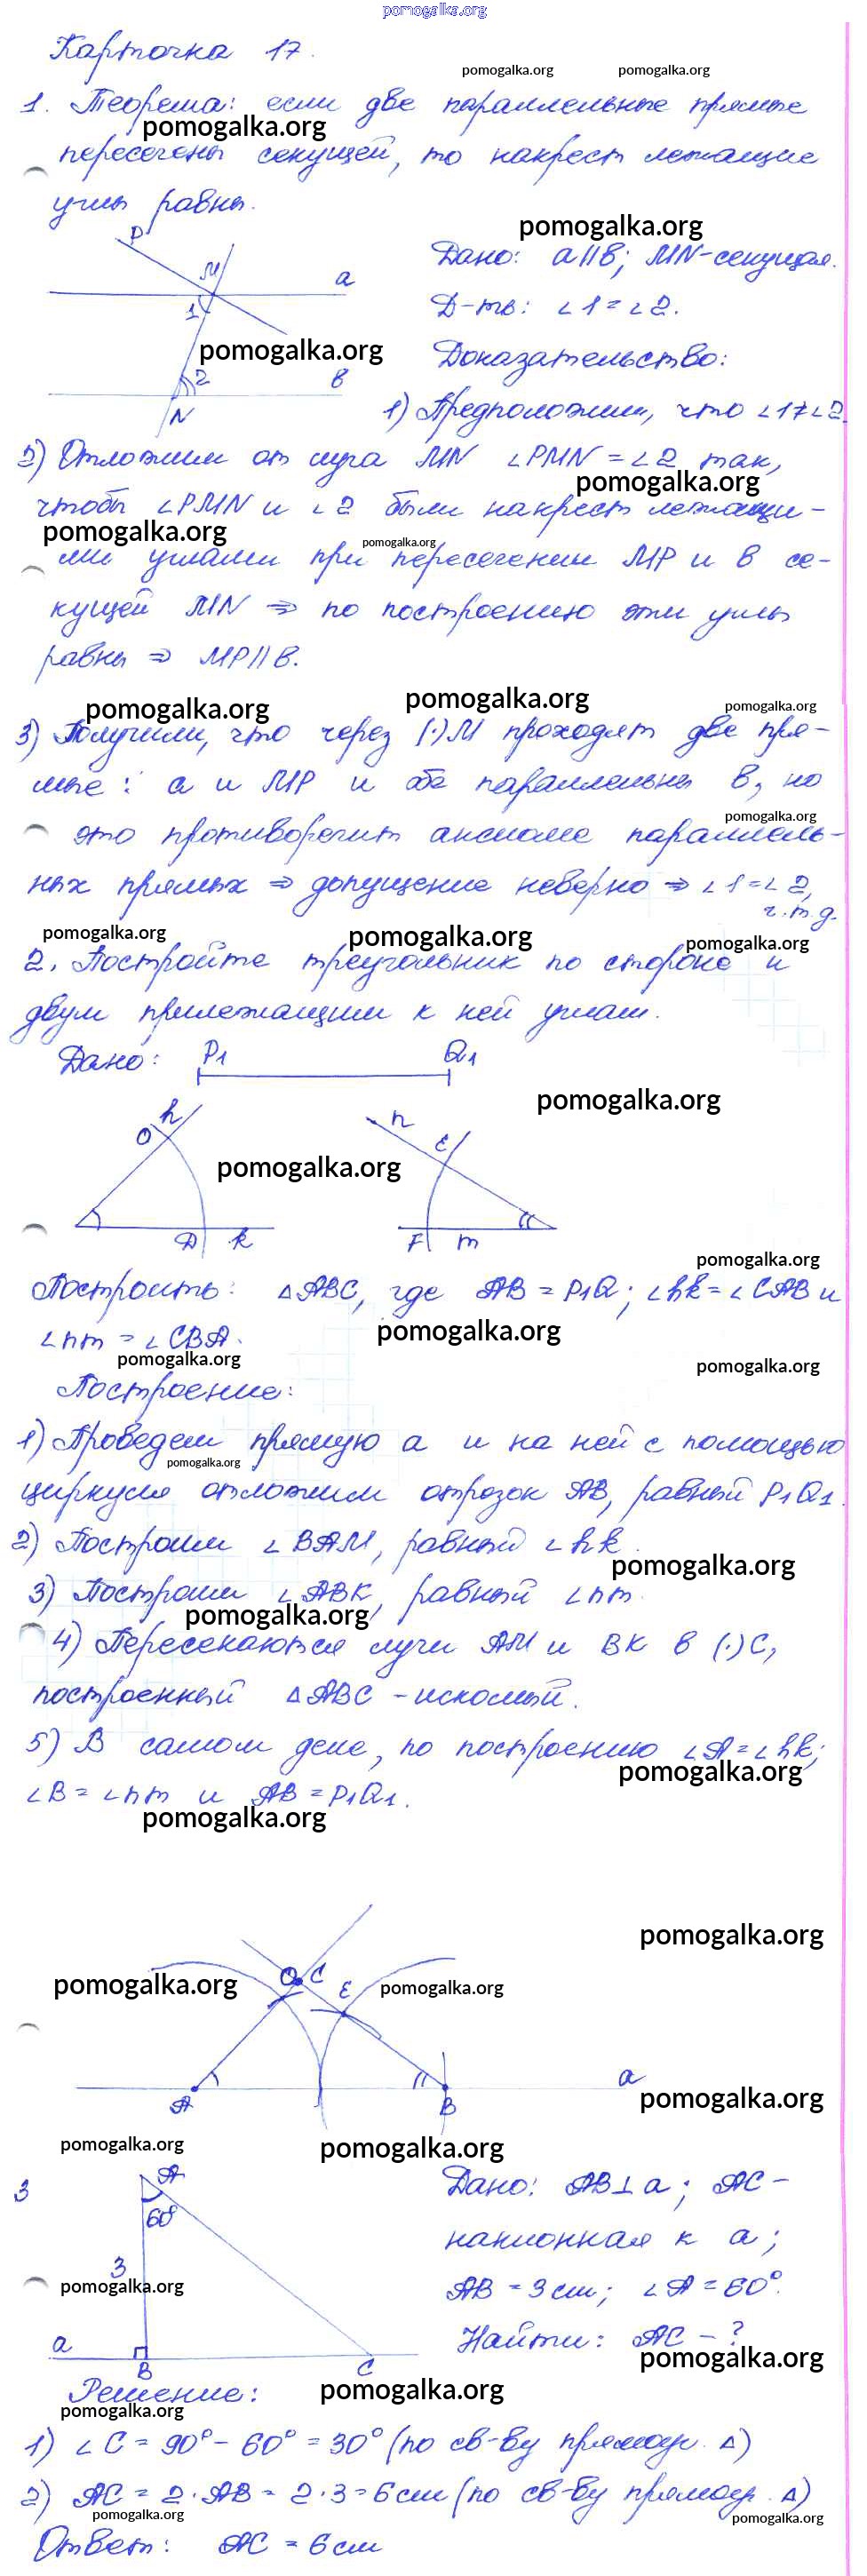 pomogalka.org
Карточка 17.
pomogalka.org pomogalka.org
1. Теорема: если две параллельные прямые
pomogalka.org
пересечены секущей, то накрест лежащие
углы равны.
pomogalka.org
P
M a
1
2 в
N
pomogalka.org
Дано: a||в; MN-секущая.
Д-ть: ∠1=∠2.
Доказательство:
1) Предположим, что ∠1≠∠2.
2) Отложим от луча MN ∠PMN=∠2 так,
pomogalka.org
чтобы ∠PMN и ∠2 были накрест лежащи-
pomogalka.org pomogalka.org
ми углами при пересечении MP и в се-
кущей MN ⇒ по построению эти углы
равны ⇒ MP||в.
pomogalka.org pomogalka.org pomogalka.org
3) Получили, что через (·)M проходят две пря-
мые: a и MP и обе параллельны в, но
pomogalka.org
это противоречит аксиоме параллель-
ных прямых ⇒ допущение неверно ⇒ ∠1=∠2,
ч.т.д.
pomogalka.org pomogalka.org pomogalka.org
2. Постройте треугольник по стороне и
двум прилежащим к ней углам.
Дано: P1 Q1
pomogalka.org
h n
O E
pomogalka.org
D k F m
pomogalka.org
Построить: △ABC, где AB=P1Q; ∠hk=∠CAB и
∠nm=∠CBA.
pomogalka.org
pomogalka.org pomogalka.org
Построение:
1) Проведем прямую a и на ней с помощью
pomogalka.org
циркуля отложим отрезок AB, равный P1Q1.
2) Построим ∠BAM, равный ∠hk.
pomogalka.org
3) Построим ∠ABK, равный ∠nm.
pomogalka.org
4) Пересекаются лучи AM и BK в (·)C,
построенный △ABC - искомый.
5) В самом деле, по построению ∠A=∠hk;
pomogalka.org
∠B=∠nm и AB=P1Q1.
pomogalka.org
pomogalka.org
O C
E
pomogalka.org pomogalka.org
a
A B
pomogalka.org
pomogalka.org pomogalka.org
3
A
60°
3
pomogalka.org
a
B C
Дано: AB⊥a; AC-
наклонная к a;
AB=3см; ∠A=60°.
Найти: AC-?
pomogalka.org
pomogalka.org
Решение:
pomogalka.org
1) ∠C=90°-60°=30° (по св-ву прямоуг. △)
2) AC=2·AB=2·3=6см (по св-ву прямоуг. △)
pomogalka.org pomogalka.org
Ответ: AC=6см